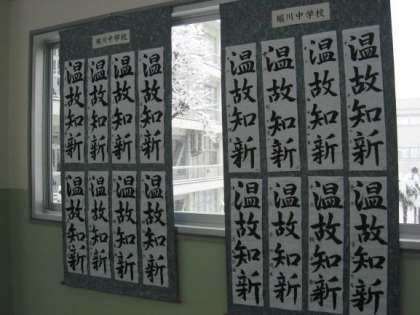 堀川中学校
温故知新
温故知新
温故知新
温故知新
温故知新
温故知新
温故知新
温故知新
堀川中学校
温故知新
温故知新
温故知新
温故知新
温故知新
温故知新
温故知新
温故知新